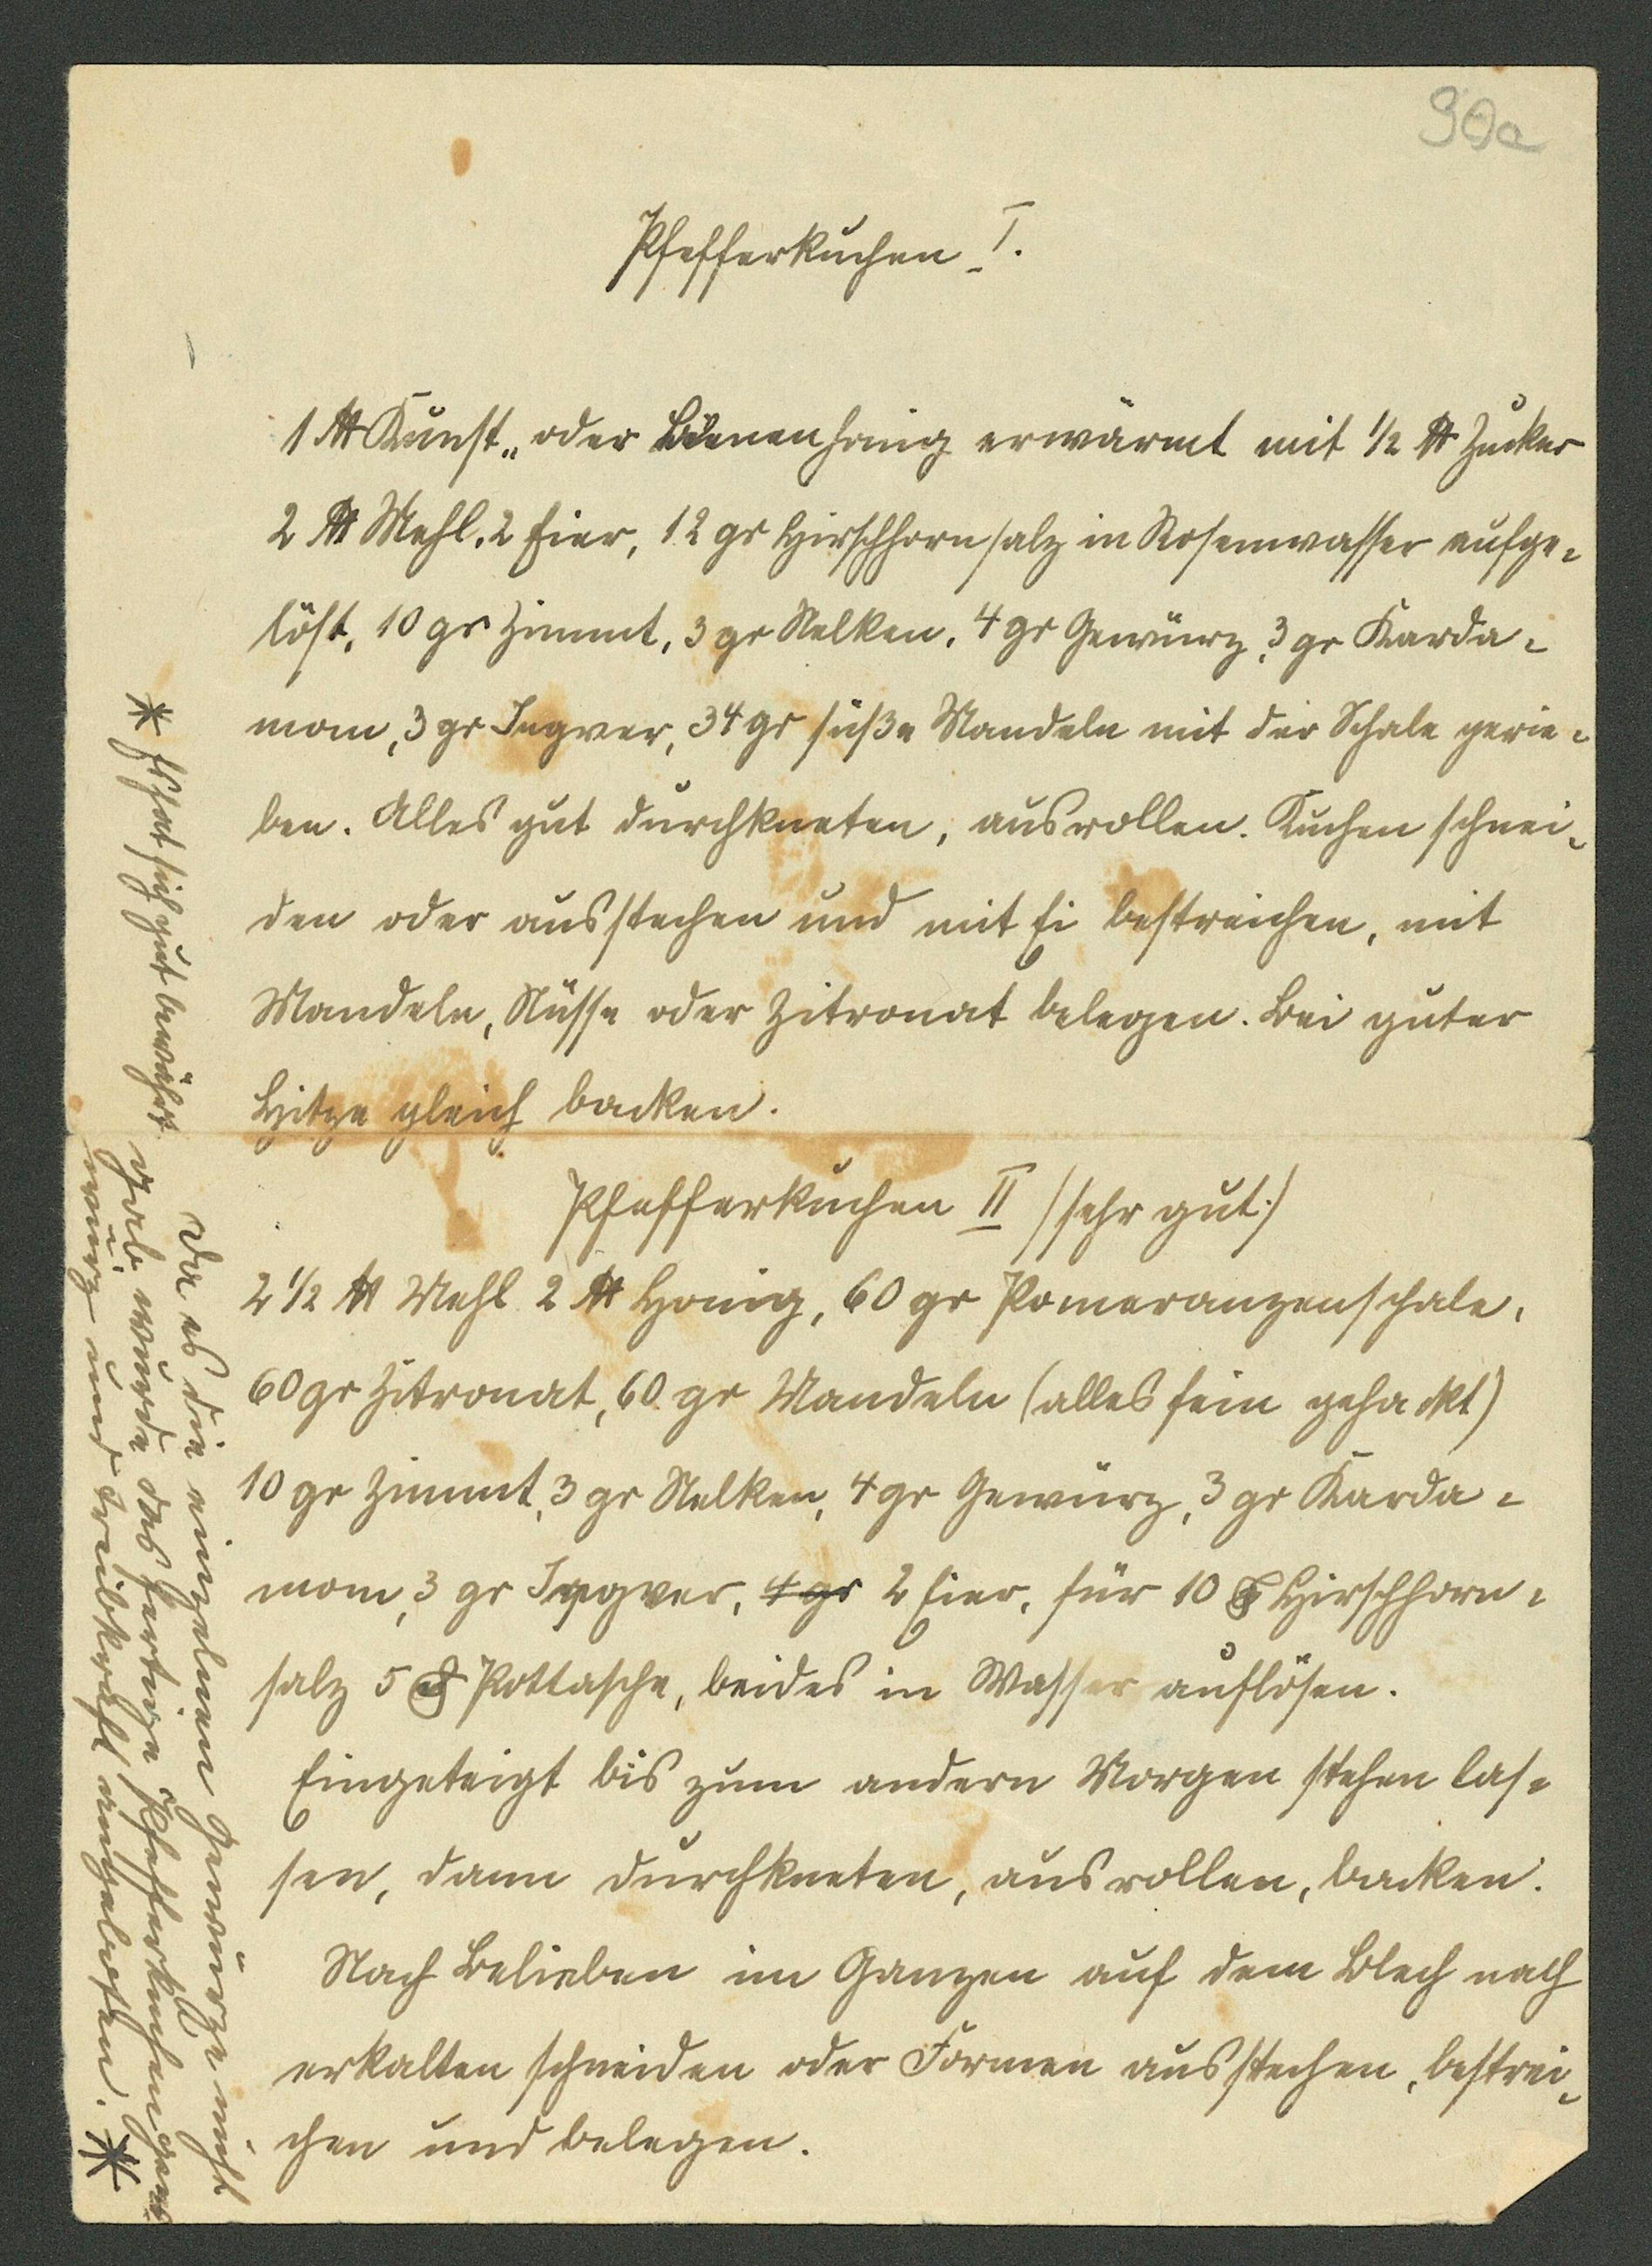 90a
Pfefferkuchen I.
1 ℔ Kunst- oder Bienenhonig erwärmt mit 1/2 ℔ Zucker
2 ℔ Mehl, 2 Eier, 12 gr Hirschhornsalz in Rosenwasser aufge-
löst, 10 gr Zimmt, 3 gr Nelken, 4 gr Gewürz, 3 gr Karda-
mom, 3 gr Ingver, 34 gr süße Mandeln mit der Schale gerie-
ben. Alles gut durchkneten, ausrollen. Kuchen schnei-
den oder ausstechen und mit Ei bestreichen, mit
Mandeln, Nüsse oder Zitronat belegen. Bei guter
Hitze gleich backen.
Pfefferkuchen II /sehr gut:/
2 1/2 ℔ Mehl 2 ℔ Honig, 60 gr Pomeranzenschale,
60 gr Zitronat, 60 gr Mandeln (alles fein gehackt)
10 gr Zimmt, 3 gr Nelken, 4 gr Gewürz, 3 gr Karda-
mom, 3 gr Ingver, 4 gr 2 Eier, für 10 ₰ Hirschhorn-
salz 5 ₰ Pottasche, beides in Wasser auflösen.
Eingeteigt bis zum andern Morgen stehen las-
sen, dann durchkneten, ausrollen, backen.
Nach Belieben im Ganzen auf dem Blech nach
erkalten schneiden oder Formen ausstechen, bestrei-
chen und belegen.
Da es die einzelnen Gewürze nicht
gab wurde das fertige Pfefferkuchenge-
würz und Treibkraft angeboten. *
* Es hat sich gut bewährt